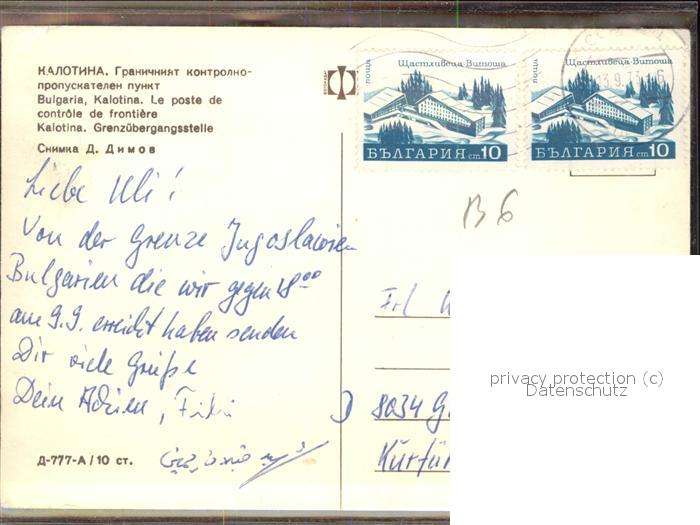 КАЛОТИНА. Граничният контролно-
пропускателен пункт
Bulgaria, Kalotina. Le poste de
contrôle de frontière
Kalotina. Grenzübergangsstelle
Снимка Д. Димов
поща
Щастливеца-Витоша
БЪЛГАРИЯ ст 10
поща
Щастливеца-Витоша
БЪЛГАРИЯ ст 10
B 6
Liebe Uli!
Von der Grenze Jugoslawien
Bulgarien die wir gegen 18⁰⁰
am 9.9. erreicht haben senden
Dir viele Grüße
Dein Adrien,
Frl
D 8034 G
Kurfür
Д-777-А/10 ст.
privacy protection (c)
Datenschutz